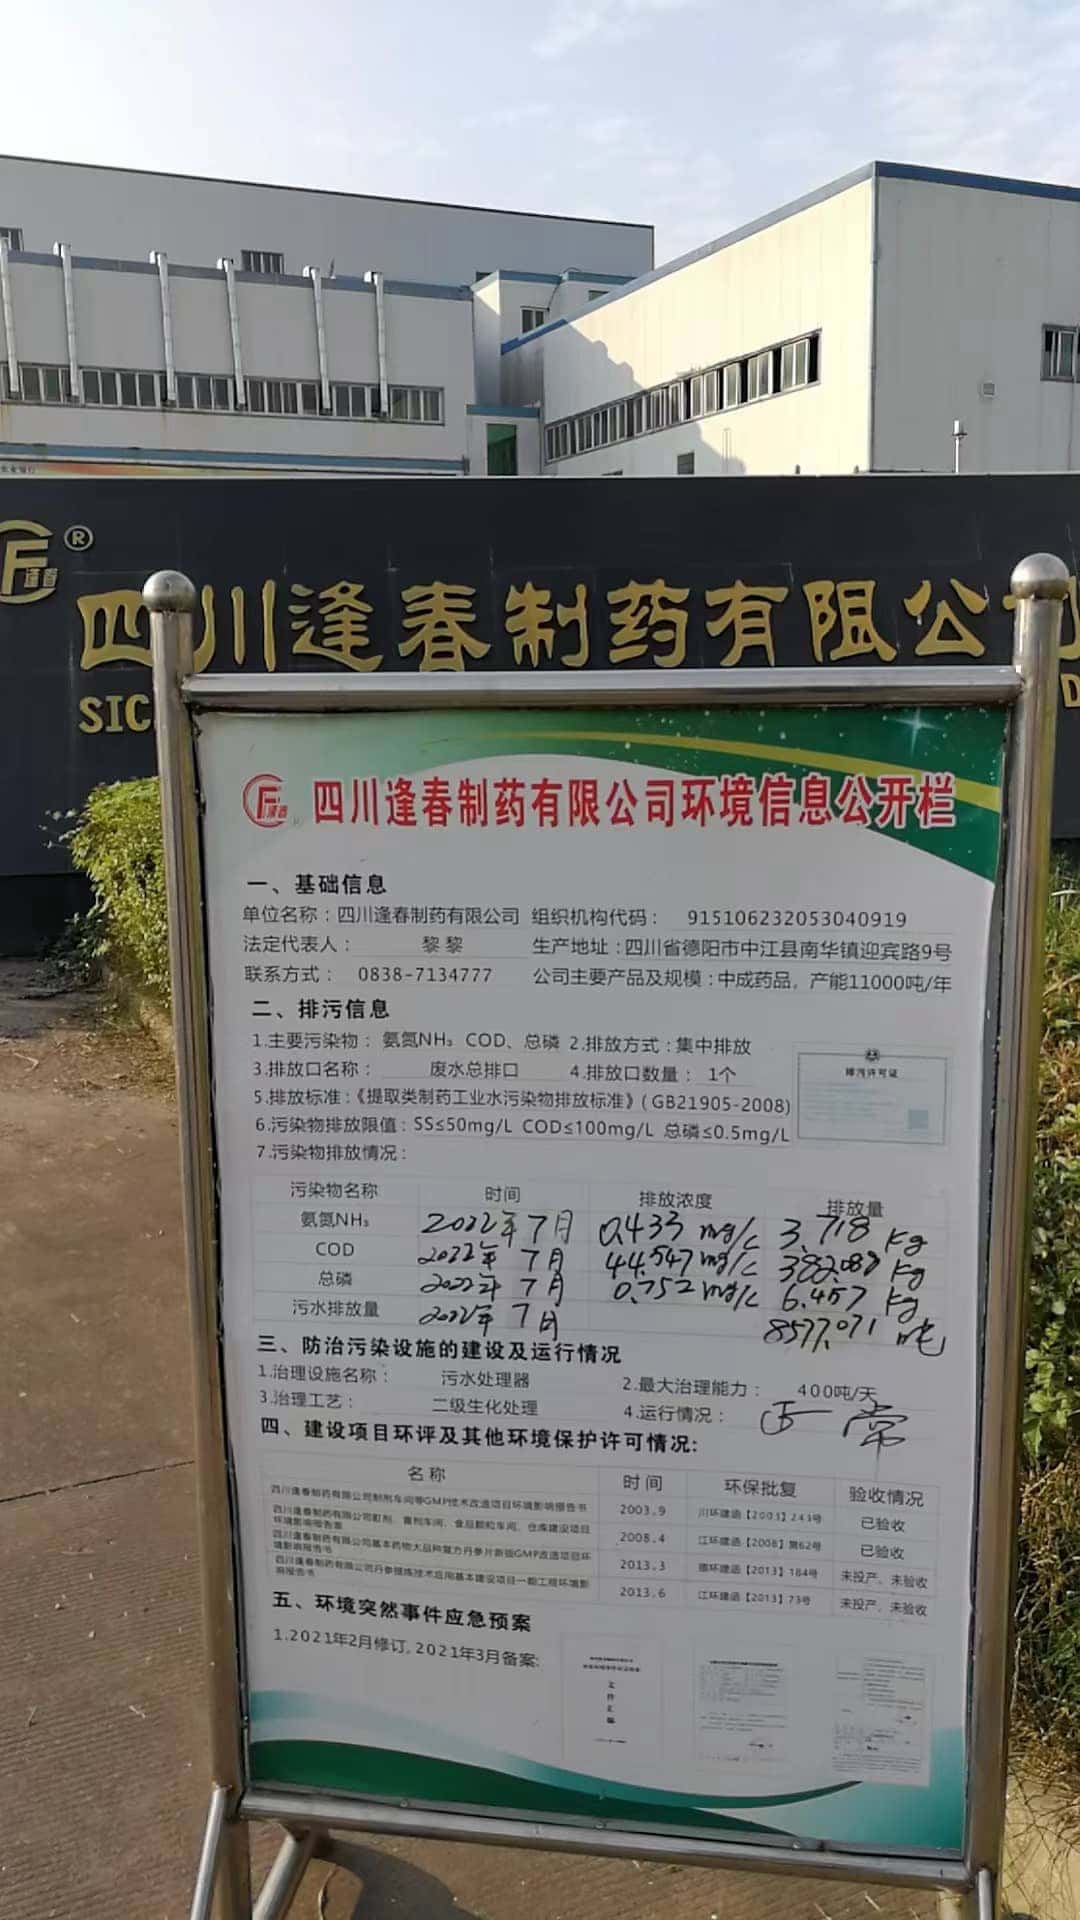 逢春
®
四川逢春制药有限公司
SIC
D
四川逢春制药有限公司环境信息公开栏
一、基础信息
单位名称：四川逢春制药有限公司 组织机构代码： 915106232053040919
法定代表人： 黎黎 生产地址：四川省德阳市中江县南华镇迎宾路9号
联系方式： 0838-7134777 公司主要产品及规模：中成药品，产能11000吨/年
二、排污信息
1.主要污染物： 氨氮NH₃ COD、总磷 2.排放方式：集中排放
3.排放口名称： 废水总排口 4.排放口数量： 1个
排污许可证
5.排放标准：《提取类制药工业水污染物排放标准》(GB21905-2008)
6.污染物排放限值：SS≤50mg/L COD≤100mg/L 总磷≤0.5mg/L
7.污染物排放情况：
污染物名称 时间 排放浓度 排放量
氨氮NH₃ 2022年7月 0.433 mg/L 3.718 Kg
COD 2022年7月 44.547 mg/L 382.082 Kg
总磷 2022年7月 0.752 mg/L 6.457 Kg
污水排放量 2022年7月 8577.071 吨
三、防治污染设施的建设及运行情况
1.治理设施名称： 污水处理器 2.最大治理能力： 400吨/天
3.治理工艺： 二级生化处理 4.运行情况： 正常
四、建设项目环评及其他环境保护许可情况:
名称 时间 环保批复 验收情况
四川逢春制药有限公司制剂车间等GMP技术改造项目环境影响报告书 2003.9 川环建函【2003】243号 已验收
四川逢春制药有限公司酊剂、膏剂车间、食品颗粒车间、仓库建设项目环境影响报告表 2008.4 江环建函【2008】第62号 已验收
四川逢春制药有限公司基本药物大品种复方丹参片新版GMP改造项目环境影响报告书 2013.3 德环建函【2013】184号 未投产、未验收
四川逢春制药有限公司丹参提炼技术应用基本建设项目一期工程环境影响报告书 2013.6 江环建函【2013】73号 未投产、未验收
五、环境突然事件应急预案
1.2021年2月修订, 2021年3月备案:
文件汇编